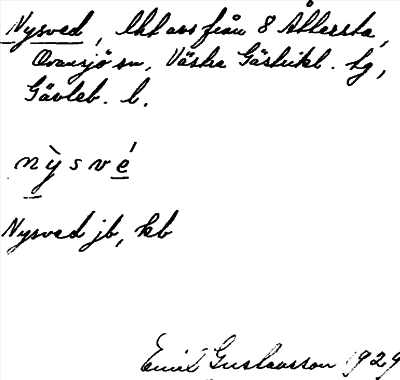 Nysved, lht avs från 8 Åttersta,
Ovansjö sn, Västra Gästrikl. tg,
Gävleb. l.
nỳsvé
Nysved jb, kb
Emil Gustavsson 1929